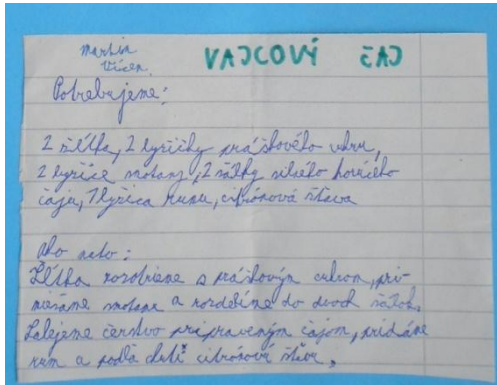 Martin
VAJCOVÝ ČAJ
Potrebujeme:
2 žĺtka, 2 lyžičky práškového cukru,
2 lyžice smotany, 2 šálky silného horúceho
čaju, 1 lyžica rumu, citrónová šťava
Ako na to:
Žĺtka rozotrieme s práškovým cukrom, pri-
miešame smotanu a rozdelíme do dvoch šálok.
Zalejeme čerstvo pripraveným čajom, pridáme
rum a podľa chuti citrónovú šťavu.